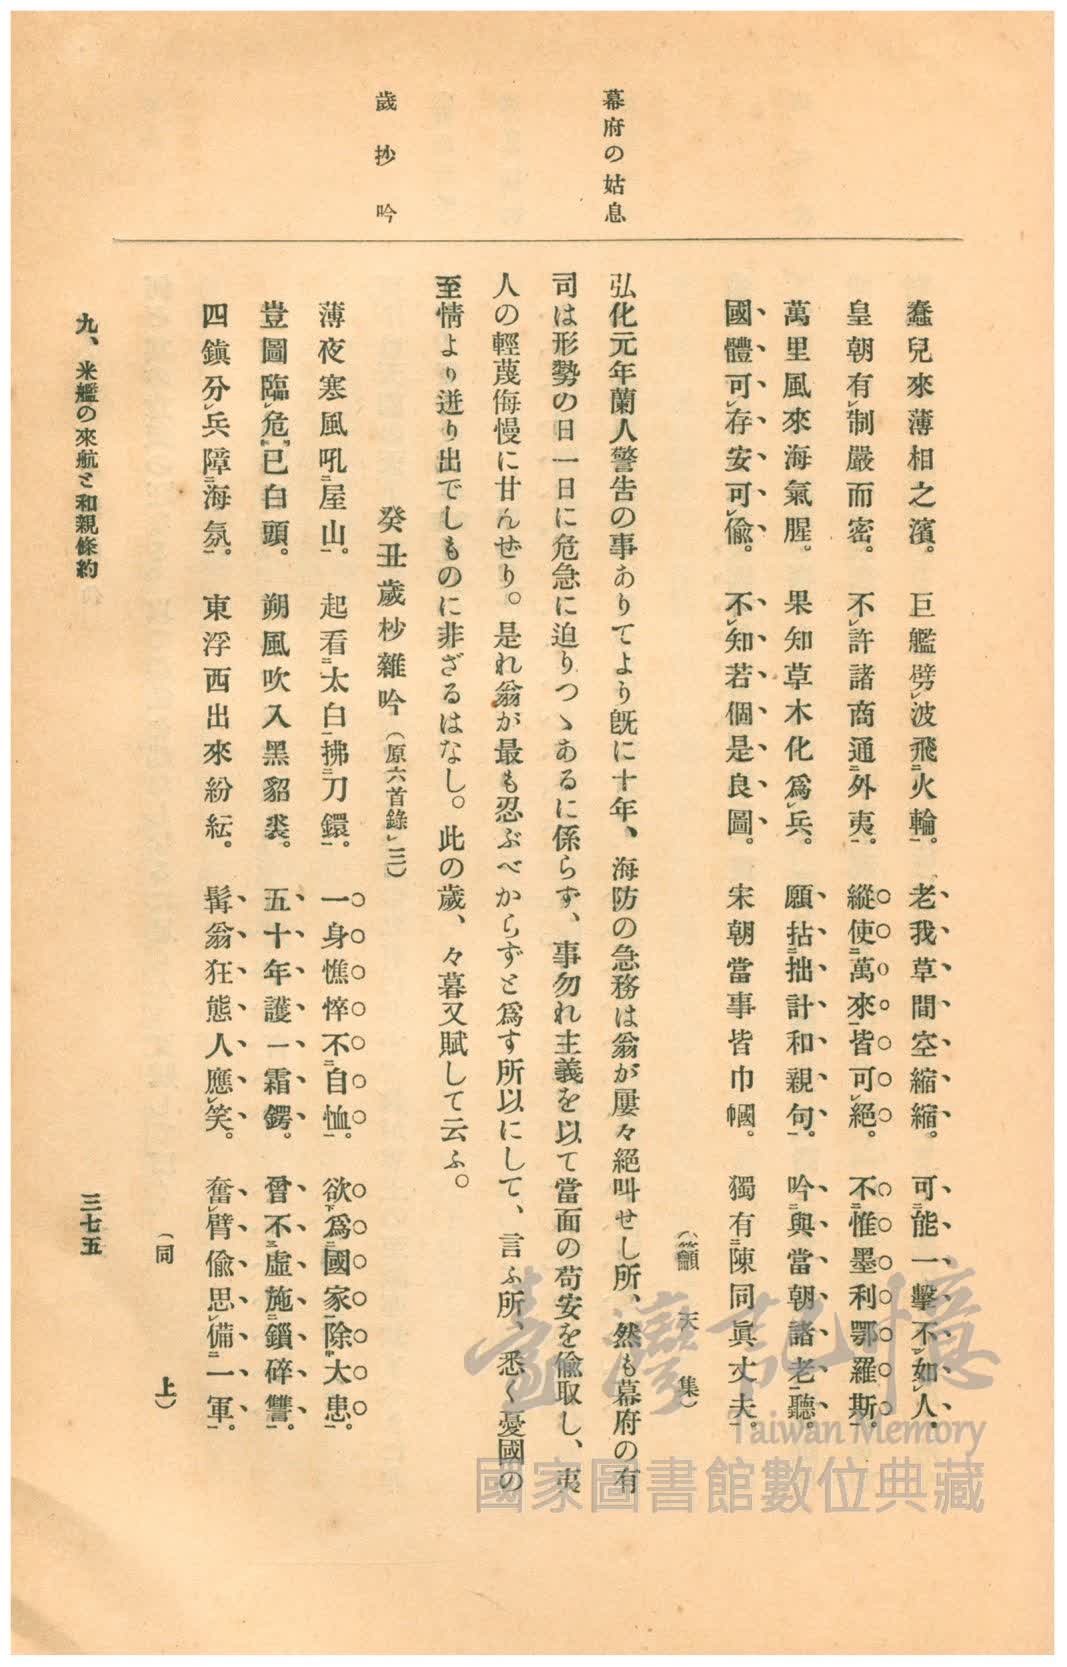 幕府の姑息
歲抄吟
蠢兒來薄相之濱。巨艦劈レ波飛二火輪一。老我草間空縮縮。可二能一擊不一レ如レ人。
皇朝有レ制嚴而密。不レ許諸商通二外夷一。縱使二萬來一皆可レ絕。不三惟墨利鄂羅斯一。
萬里風來海氣腥。果知草木化爲レ兵。願拈二拙計和親句一。吟與二當朝諸老一聽。
國體可レ存安可レ偸。不レ知若個是良圖。宋朝當事皆巾幗。獨有二陳同眞丈夫一。
(籲天集)
弘化元年蘭人警告の事ありてより既に十年、海防の急務は翁が屢々絕叫せし所、然も幕府の有
司は形勢の日一日に危急に迫りつゝあるに係らず、事勿れ主義を以て當面の苟安を偸取し、夷
人の輕蔑侮慢に甘んぜり。是れ翁が最も忍ぶべからずと爲す所以にして、言ふ所、悉く憂國の
至情より迸り出でしものに非ざるはなし。此の歲、々暮又賦して云ふ。
癸丑歲杪雜吟(原六首錄レ三)
薄夜寒風吼二屋山一。起看二太白一拂二刀鐶一。一身憔悴不二自恤一。欲下爲二國家一除中大患上。
豈圖臨レ危已白頭。朔風吹入黑貂裘。五十年護一霜鍔。晉不三虛施二鎖碎讐一。
四鎭分レ兵障二海氛一。東浮西出來紛紜。髯翁狂態人應レ笑。奮レ臂偸思レ備二一軍一。
(同上)
九、米艦の來航と和親條約
三七五
臺灣記憶
Taiwan Memory
國家圖書館數位典藏